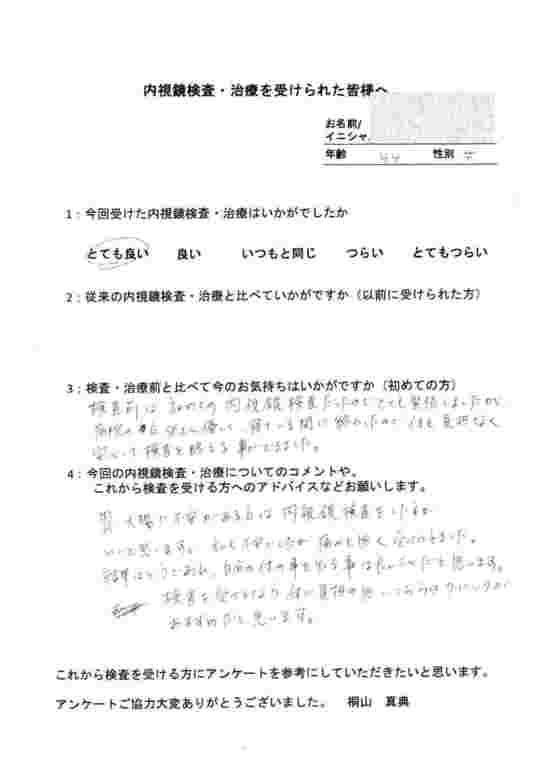 内視鏡検査・治療を受けられた皆様へ
お名前/
イニシャ
年齢 44 性別
1：今回受けた内視鏡検査・治療はいかがでしたか
とても良い 良い いつもと同じ つらい とてもつらい
2：従来の内視鏡検査・治療と比べていかがですか（以前に受けられた方）
3：検査・治療前と比べて今のお気持ちはいかがですか（初めての方）
検査前は初めての内視鏡検査だったのでとても緊張しましたが
病院の 寝ている間に終わったので 何も負担なく
安心して検査を終える事ができました。
4：今回の内視鏡検査・治療についてのコメントや。
これから検査を受ける方へのアドバイスなどお願いします。
大腸に不安がある方は内視鏡検査をした方が
いいと思います。私も不安でしたが痛みも無く受けれました。
結果はどうであれ、自分の体の事を知る事は良い事だと思います。
検査を受けるなら 体に負担の無い クリニックが
おすすめだと思います。
これから検査を受ける方にアンケートを参考にしていただきたいと思います。
アンケートご協力大変ありがとうございました。 桐山 真典